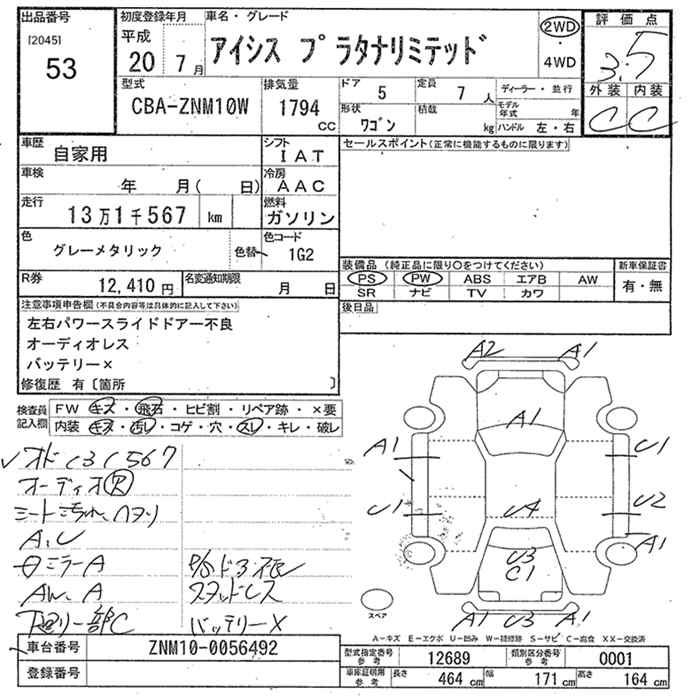 出品番号
[2045]
53
初度登録年月
平成
20 7月
車名・グレード
アイシス プラタナリミテッド
2WD
・
4WD
評価点
3.5
外装 内装
C C
型式
CBA-ZNM10W
排気量
1794
CC
ドア
5
定員
7 人
形状
ワゴン
積載
kg
ディーラー・並行
モデル年式 年
ハンドル 左・右
車歴
自家用
シフト
IAT
車検
年 月( 日)
冷房
AAC
走行
13万1千567 km
燃料
ガソリン
色
グレーメタリック
色替
色コード
1G2
R券
12,410円
名変通知期限
月 日
セールスポイント(正常に機能するものに限ります)
装備品(純正品に限り○をつけてください)
PS PW ABS エアB AW
SR ナビ TV カワ
新車保証書
有・無
後日品
注意事項申告欄(不具合内容等は具体的に記入して下さい)
左右パワースライドドアー不良
オーディオレス
バッテリー×
修復歴 有〔箇所 〕
検査員記入欄
FW キズ・飛石・ヒビ割・リペア跡・×要
内装 キズ・汚レ・コゲ・穴・スレ・キレ・破レ
オド131567
オーディオR
シート汚れ、ヘタリ
A、U
ミラーA
AW、A
下廻り一部C
スタッドレス
バッテリー×
A2 A1
A1
A1 U1
U1 U2
UA
A1
U3
C1
A1 U3 A1
スペア
A－キズ E－エクボ U－凹み W－補修跡 S－サビ C－腐食 XX－交換済
車台番号
ZNM10-0056492
登録番号
型式指定番号参考
12689
類別区分番号参考
0001
車庫証明用参考
長さ 464 cm
幅 171 cm
高さ 164 cm